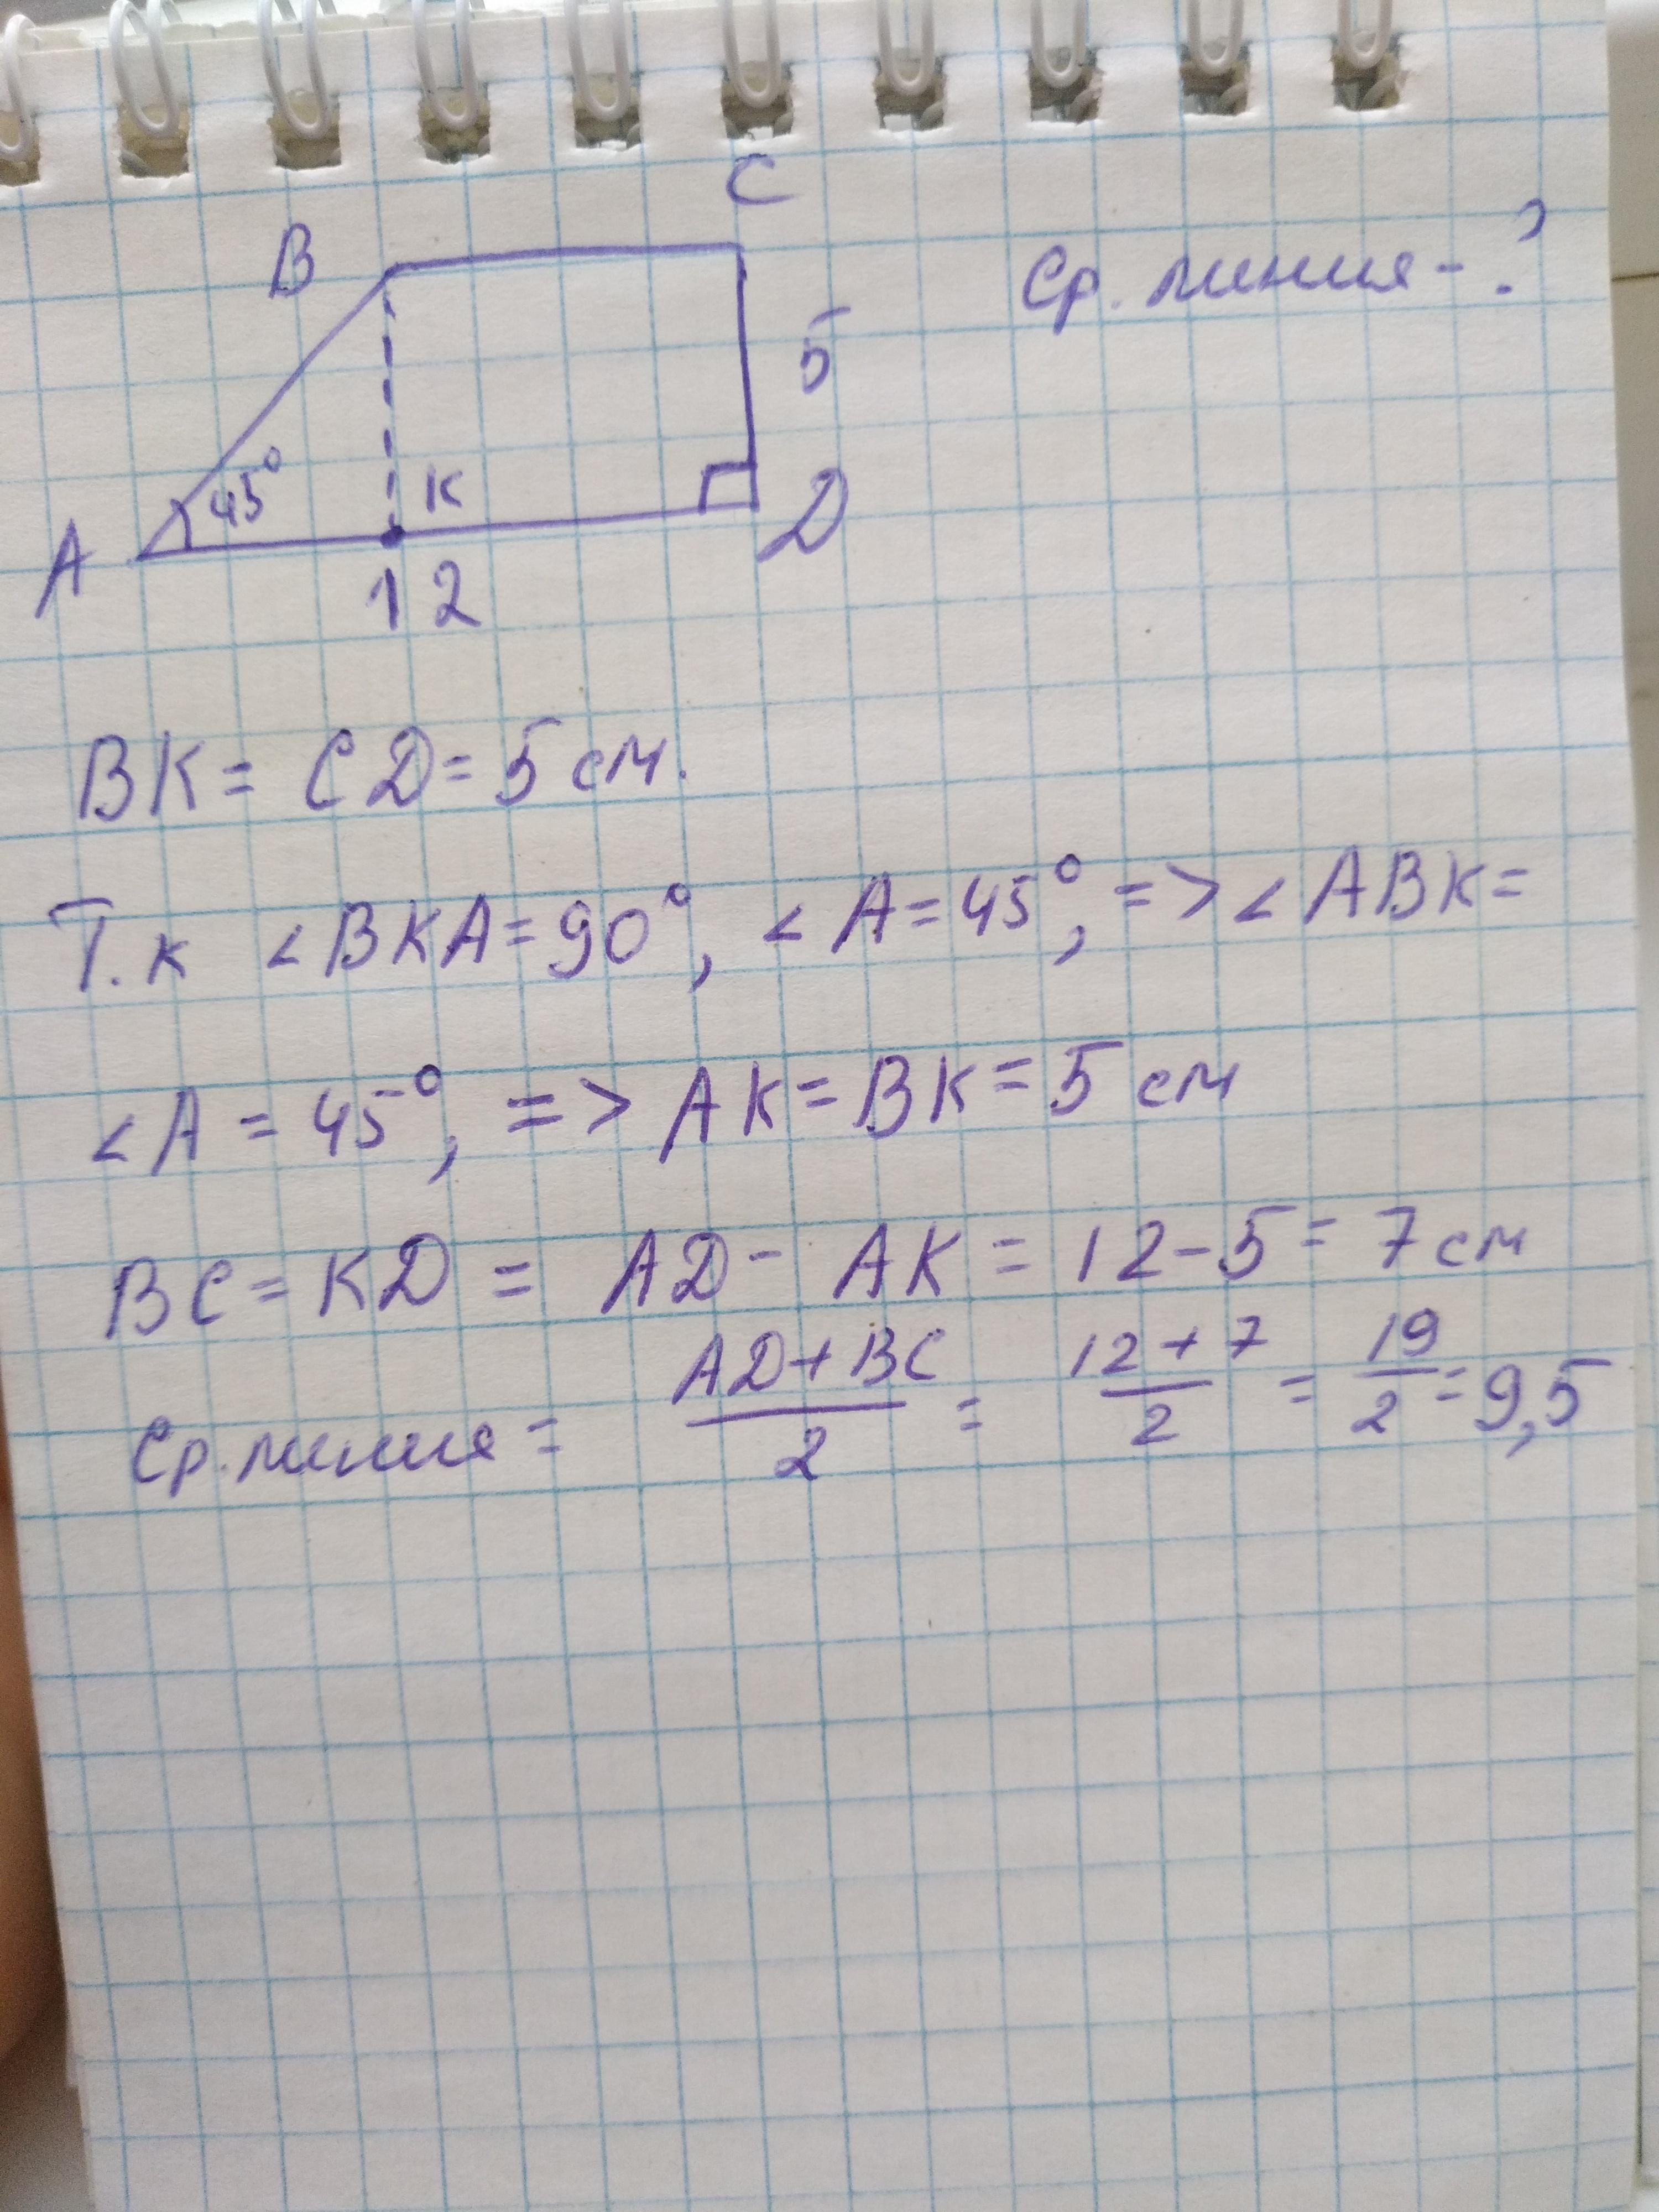 C
B
Ср. линия - ?
5
45°
K
A
D
12
BK = CD = 5 см.
Т.к ∠BKA = 90°, ∠A = 45°, => ∠ABK =
∠A = 45°, => AK = BK = 5 см
BC = KD = AD - AK = 12 - 5 = 7 см
Ср. линия = AD + BC / 2 = 12 + 7 / 2 = 19 / 2 = 9,5